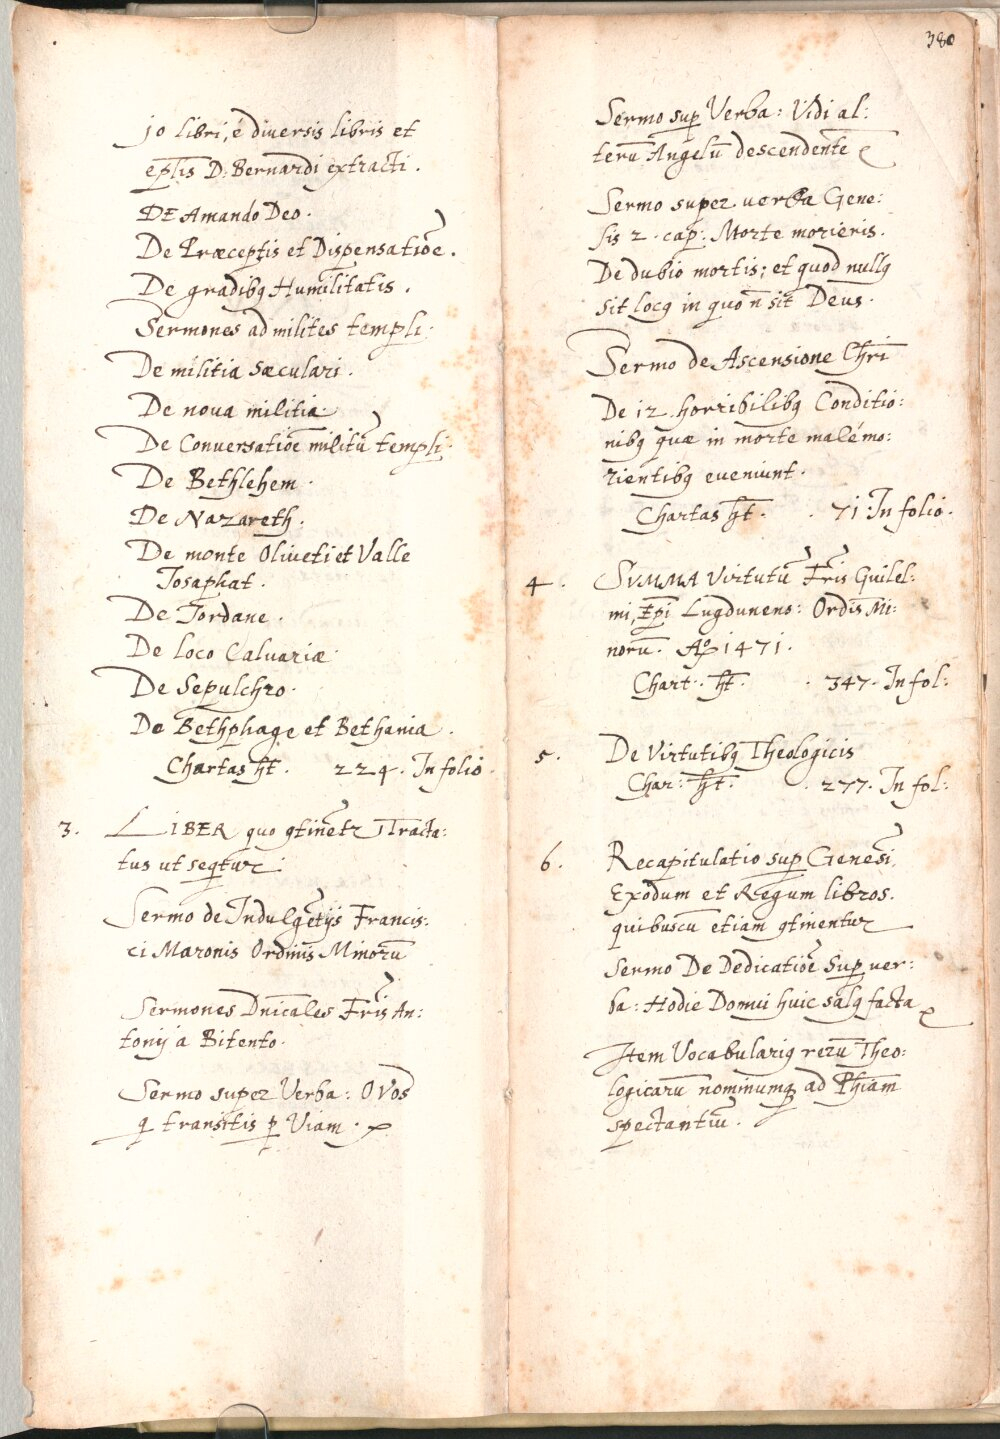 jo libri, é diuersis libris et
eplis D. Bernardi extracti.
DE Amando Deo.
De Præceptis et Dispensatiõe.
De gradibq Humilitatis.
Sermones ad milites templi.
De militia sæculari.
De noua militia.
De Conuersatiõe militũ templi.
De Bethlehem.
De Nazareth.
De monte Oliueti et Valle
Josaphat.
De Jordane.
De loco Caluariæ.
De Sepulchro.
De Bethphage et Bethania.
Chartas ht. 224. In folio.
3. LIBER quo 9tinetr Tracta:
tus ut seqtur:
Sermo de Indulgetijs Francis:
ci Maronis Ordinis Minorũ
Sermones Dnicales Fris An:
tonij á Bitento.
Sermo super Verba: O Vos
q transitis p Viam.
380
Sermo sup Verba: Vidi al:
terũ Angelũ descendente
Sermo super uerba Gene:
sis 2. cap: Morte morieris.
De dubio mortis; et quod nullq
sit locq in quo ñ sit Deus.
Sermo de Ascensione Chri
De 12 horribilibq Conditio:
nibq quæ in morte malé mo:
rientibq eveniunt.
Chartas ht. 71 In folio.
4. SVMMA Virtutũ Fris Guilel:
mi, Epi Lugdunens: Ordis Mi:
norũ. Ao 1471.
Chart. ht. 347. In fol:
5. De Virtutibq Theologicis
Char: ht. 277. In fol:
6. Recapitulatio sup Genesi,
Exodum et Regum libros.
quibuscũ etiam 9tinentur
Sermo De Dedicatiõe Sup uer:
ba: Hodie Domui huic salq facta
Item Vocabulariq rerũ Theo:
logicarũ nominumq ad Phiam
spectantiũ.